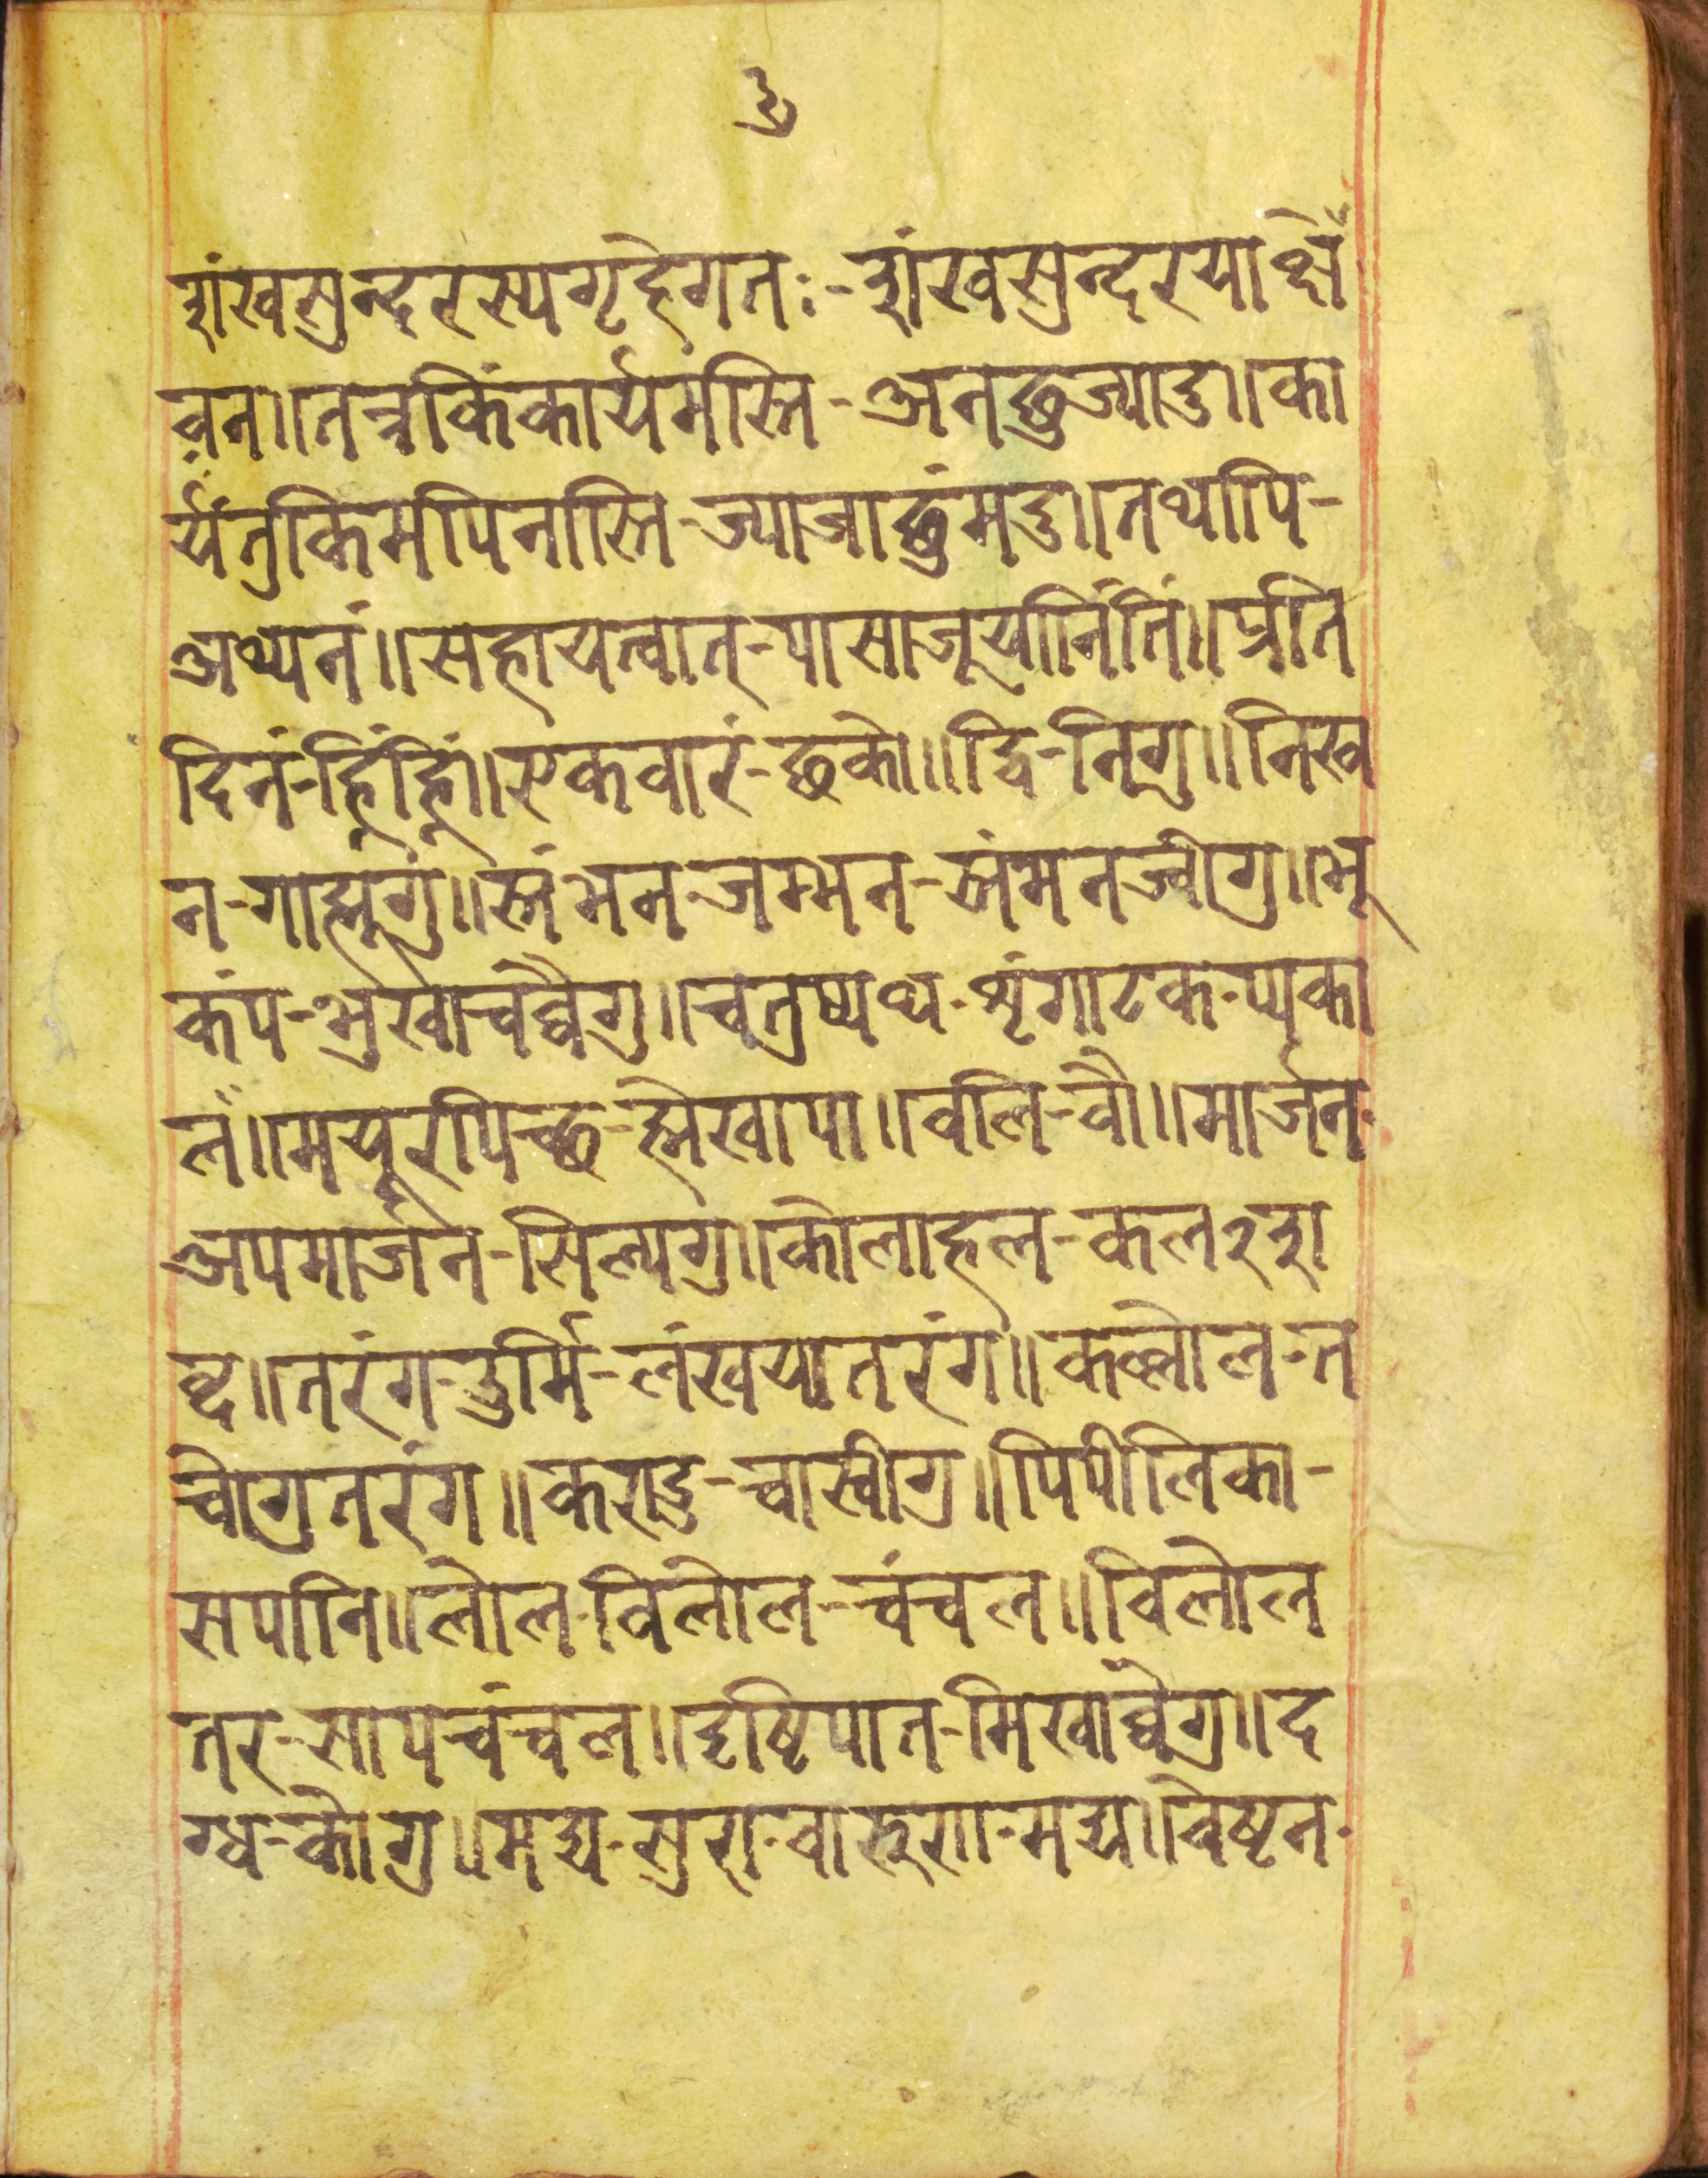 ३
शंखसुन्दरस्यगृहेगतः-शंखसुन्दरयाक्षें
वन॥तत्रकिंकार्यमस्ति-अनछुज्यादु॥का
र्यंतुकिमपिनास्ति-ज्याजाछुंमदु॥तथापि-
अध्यनं॥सहायत्वात्-पासाजूयानिंतिं॥प्रति
दिनं-हिंहिं॥एकवारं-छको॥द्वि-निगु॥निख
न-गाह्लगु॥स्तंभन-जम्भन-स्तंभनज्वीगु॥भू
कंप-भुखाचब्वैगु॥चतुष्पथ-शृंगाटक-प्यका
लं॥मयूरपिच्छ-ह्मेखापा॥वलि-वौ॥मार्जन-
अपमार्जन-सिल्पगु॥कोलाहल-कल२श
ब्द॥तरंग-दुर्मि-लंखयातरंग॥कल्लोल-त
चोगुतरंग॥कराडु-चासीगु॥पिपीलिका-
सपनि॥लोल-विलोल-चंचल॥विलोल
तर-सापचंचल॥दृष्टिपात-मिखांब्वेगु॥द
ग्ध-कोगु॥मद्य-सुरा-वारुणा-मद्य॥वेष्टन-